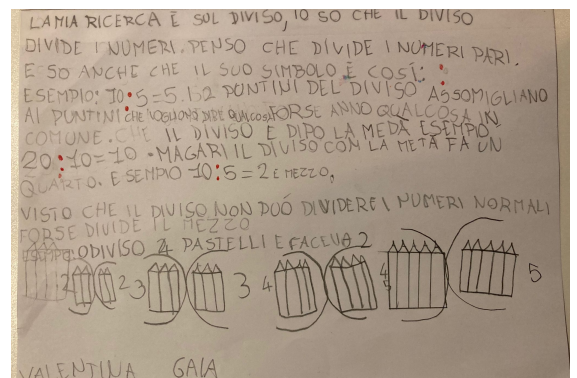 LA MIA RICERCA È SUL DIVISO, IO SO CHE IL DIVISO
DIVIDE I NUMERI. PENSO CHE DIVIDE I NUMERI PARI.
E SO ANCHE CHE IL SUO SIMBOLO È COSÍ: :
ESEMPIO: 10:5=5. I 2 PUNTINI DEL DIVISO ASSOMIGLIANO
AI PUNTINI CHE VOGLIONO DIRE QUALCOSA FORSE ANNO QUALCOSA IN
COMUNE. CHE IL DIVISO E DIPO LA MEDÀ ESEMPIO
20:10=10. MAGARI IL DIVISO CON LA METÀ FA UN
QUARTO. ESEMPIO 10:5=2 E MEZZO,
VISTO CHE IL DIVISO NON DUÓ DIVIDERE I NUMERI NORMALI
FORSE DIVIDE IL MEZZO
DIVISO 4 PASTELLI E FACEVA 2
2 2 3 3 4 4 5 5
VALENTINA GAIA